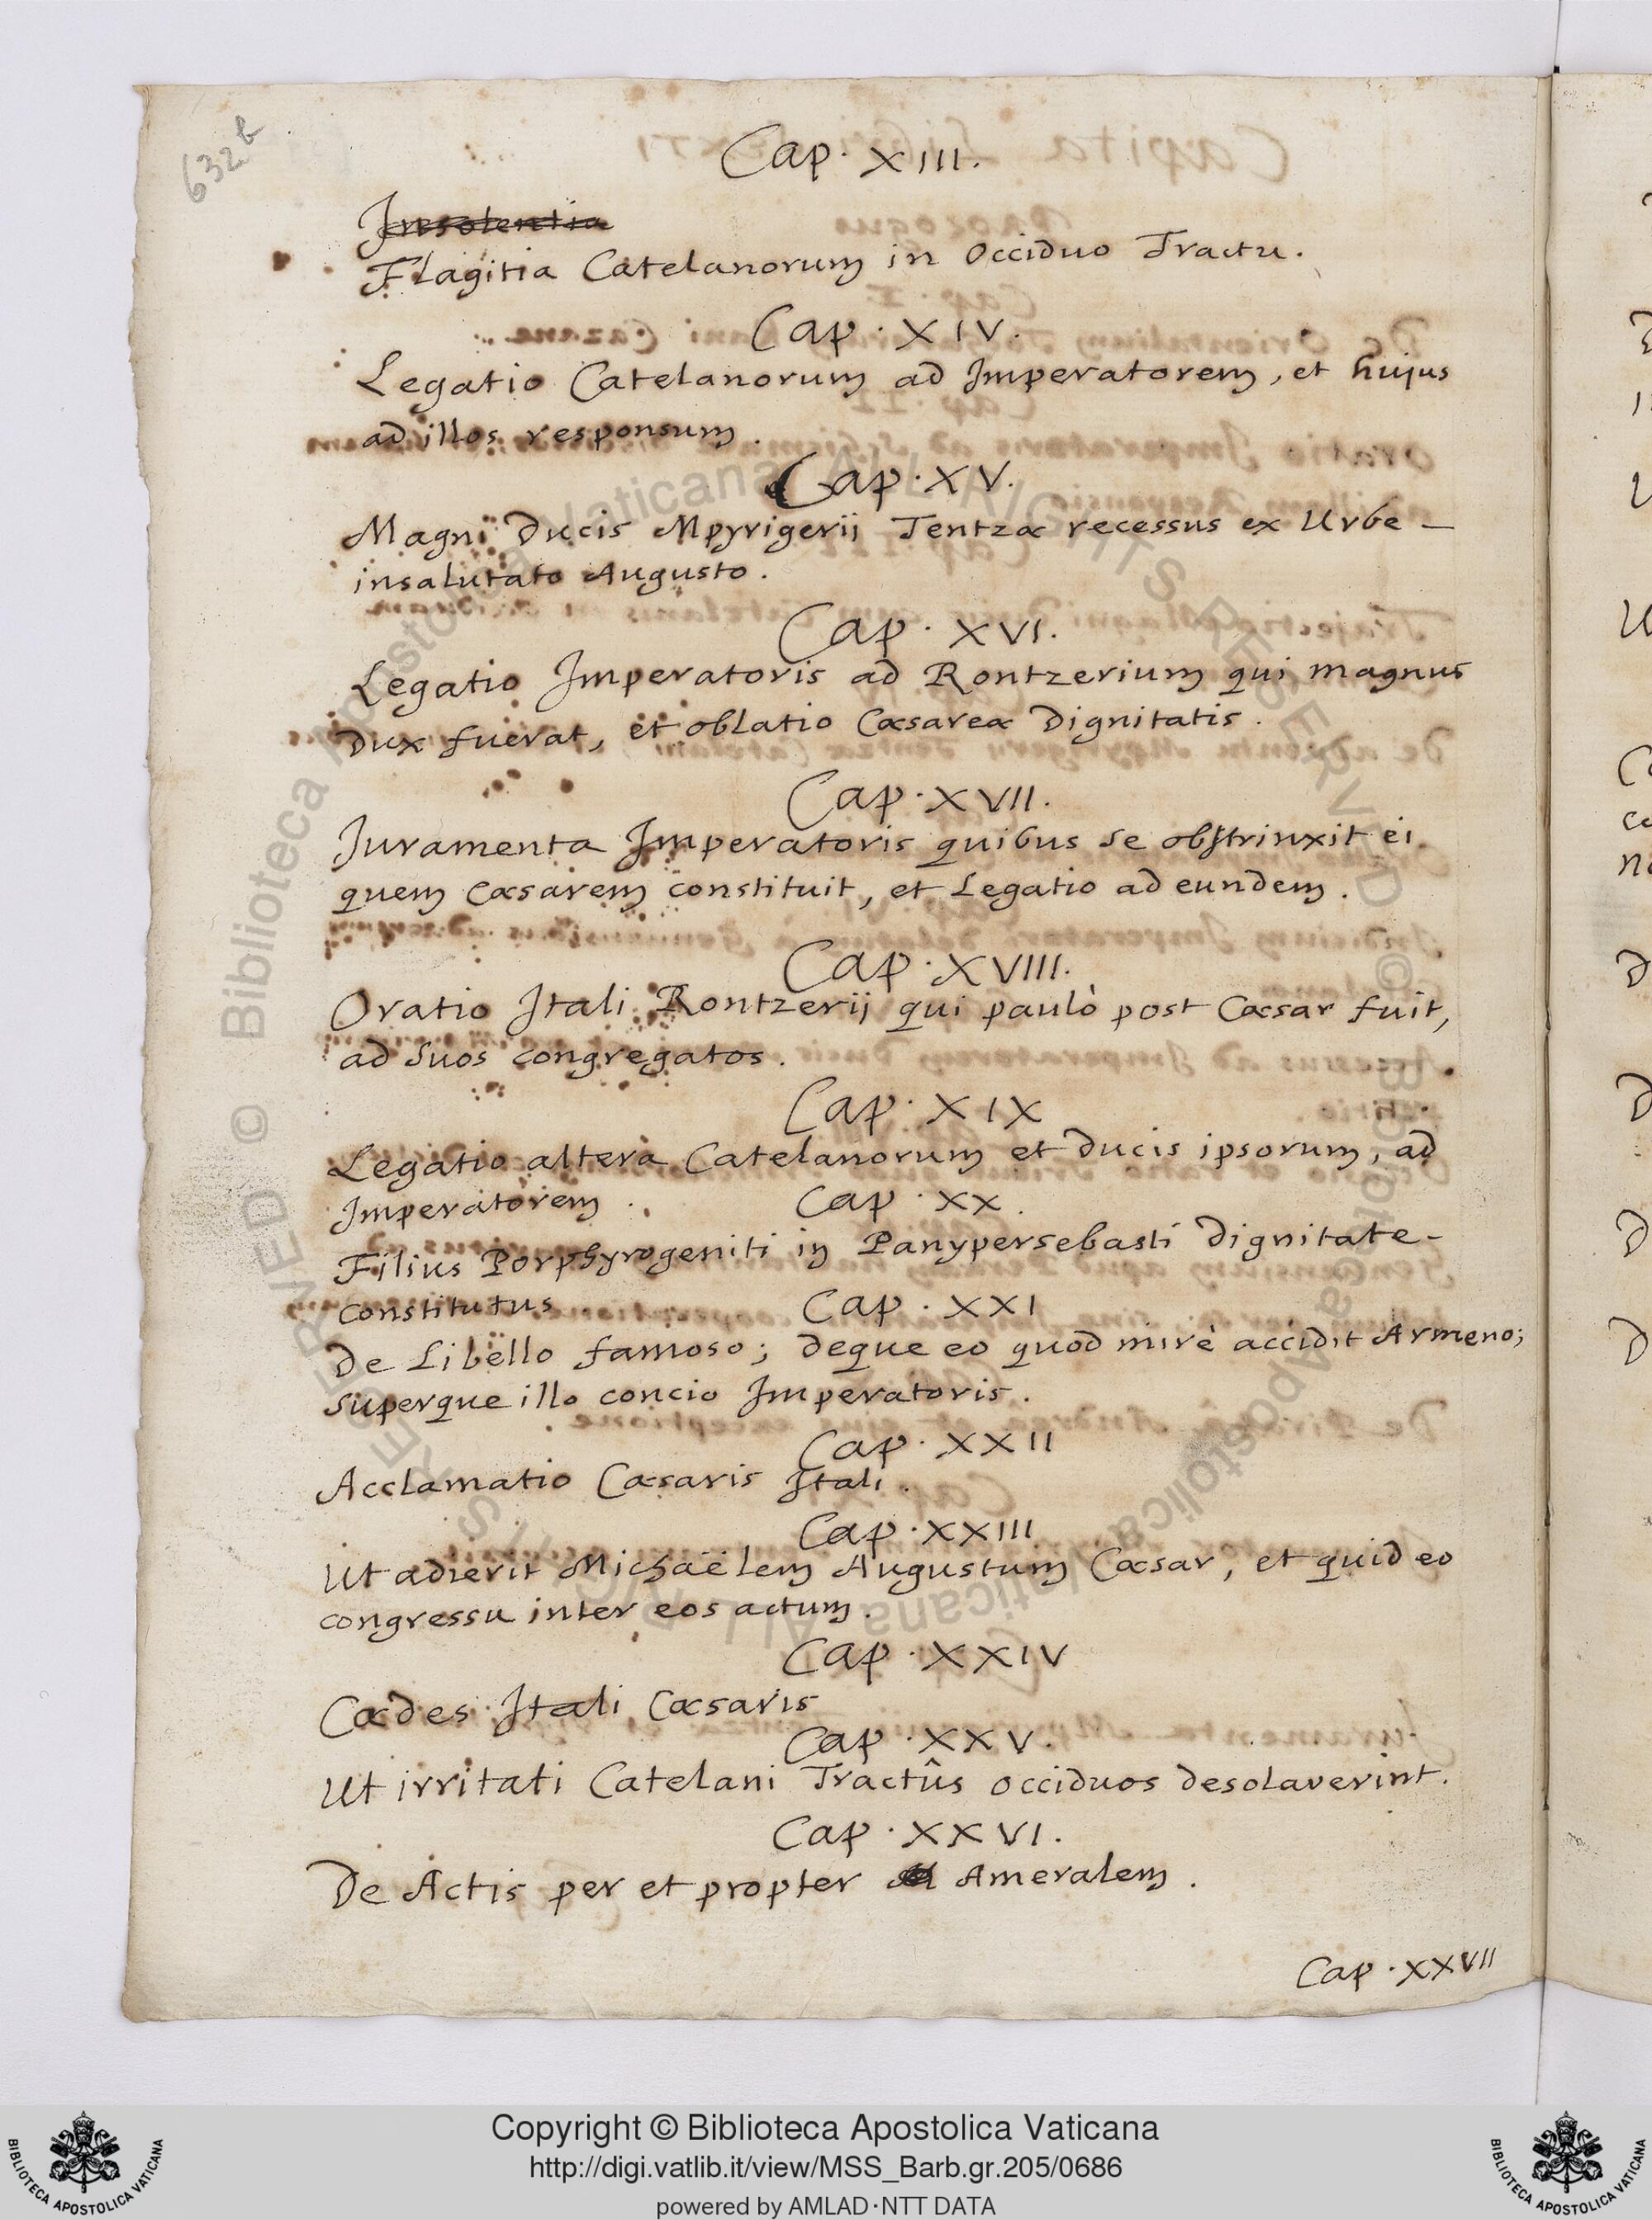 632b
Cap. XIII.
Insolentia
Flagitia Catelanorum in Occiduo Tractu.
Cap. XIV.
Legatio Catelanorum ad Imperatorem, et hujus
ad illos responsum.
Cap. XV.
Magni Ducis Mpyrigerij Tentzæ recessus ex Urbe –
insalutato Augusto.
Cap. XVI.
Legatio Imperatoris ad Rontzerium qui magnus
Dux fuerat, et oblatio Cæsareæ Dignitatis.
Cap. XVII.
Juramenta Imperatoris quibus se obstrinxit ei
quem Cæsarem constituit, et Legatio ad eundem.
Cap. XVIII.
Oratio Itali Rontzerij qui paulò post Cæsar fuit,
ad suos congregatos.
Cap. XIX
Legatio altera Catelanorum et Ducis ipsorum, ad
Imperatorem. Cap. XX.
Filius Porphyrogeniti in Panypersebasti Dignitate –
constitutus Cap. XXI
De Libello famoso; deque eo quod mirè accidit Armeno;
superque illo concio Imperatoris.
Cap. XXII
Acclamatio Cæsaris Itali.
Cap. XXIII
Ut adierit Michaëlem Augustum Cæsar, et quid eo
congressu inter eos actum.
Cap. XXIV
Cædes Itali Cæsaris
Cap. XXV.
Ut irritati Catelani Tractûs occiduos desolaverint.
Cap. XXVI.
De Actis per et propter Ameralem.
Cap. XXVII
Copyright © Biblioteca Apostolica Vaticana
http://digi.vatlib.it/view/MSS_Barb.gr.205/0686
powered by AMLAD·NTT DATA
BIBLIOTECA APOSTOLICA VATICANA
BIBLIOTECA APOSTOLICA VATICANA